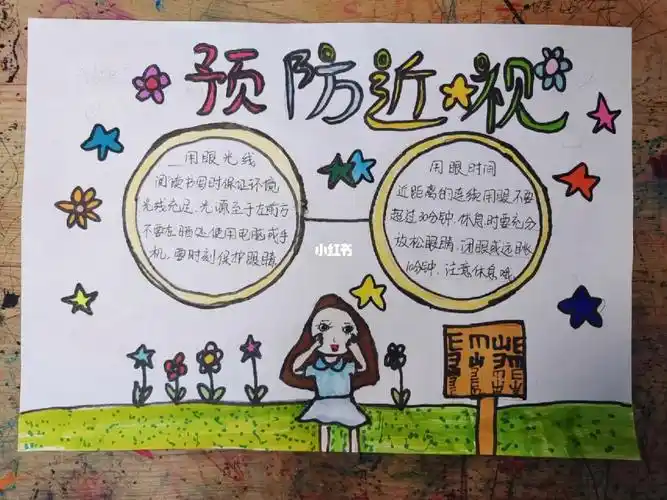 预防近视
用眼光线
阅读书写时保证环境
光线充足，光源至于左前方
不要在晒处使用电脑或手
机，要时刻保护眼睛
用眼时间
近距离的连续用眼不要
超过30分钟，休息时要充分
放松眼睛，闭眼或远眺
10分钟，注意休息哦
小红书